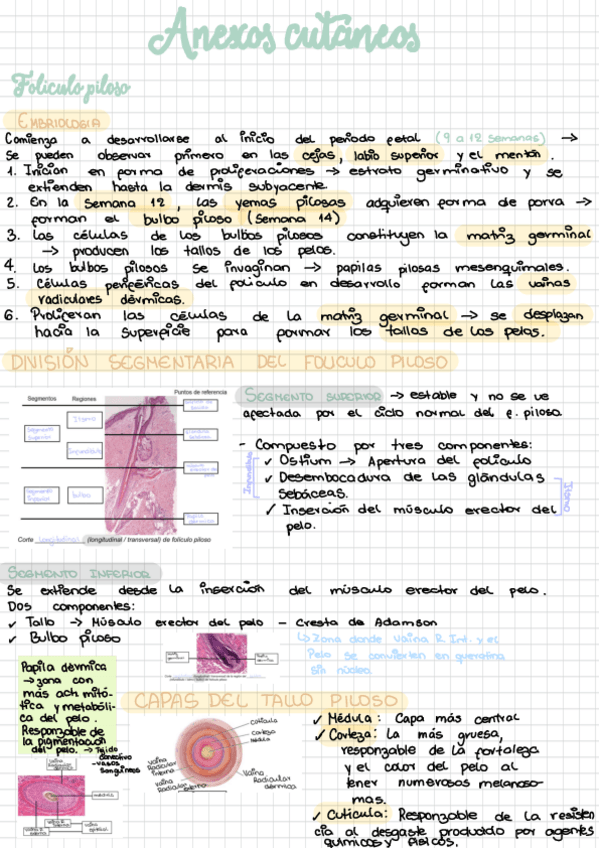 Anexos cutáneos
Folículo piloso
EMBRIOLOGIA
Comienza a desarrollarse al inicio del periodo fetal (9 a 12 semanas) →
Se pueden observar primero en las cejas, labio superior y el mentón.
1. Inician en forma de proliferaciones → estrato germinativo y se
extienden hasta la dermis subyacente
2. En la semana 12, las yemas pilosas adquieren forma de porra →
forman el bulbo piloso (semana 14)
3. Las células de los bulbos pilosos constituyen la matriz germinal
→ producen los tallos de los pelos.
4. Los bulbos pilosos se invaginan → papilas pilosas mesenquimales.
5. Células periféricas del folículo en desarrollo forman las vainas
radiculares dérmicas.
6. Proliferan las células de la matriz germinal → se desplazan
hacia la superficie para formar los tallos de los pelos.
DIVISIÓN SEGMENTARIA DEL FOLICULO PILOSO
Segmentos Regiones Puntos de referencia
Segmento superior
Istmo
Infundíbulo
Segmento inferior
bulbo
Papila dérmica
Corte longitudinal (longitudinal / transversal) de folículo piloso
SEGMENTO SUPERIOR → estable y no se ve
afectada por el ciclo normal del f. piloso
- Compuesto por tres componentes:
✓ Ostium → Apertura del folículo
✓ Desembocadura de las glándulas
sebáceas.
✓ Inserción del músculo erector del
pelo.
Infundíbulo
Istmo
SEGMENTO INFERIOR
Se extiende desde la inserción del músculo erector del pelo.
Dos componentes:
✓ Tallo → Músculo erector del pelo - Cresta de Adamson
✓ Bulbo piloso
↳ Zona donde vaina R. Int. y el
Pelo se convierten en queratina
sin núcleo.
Papila dérmica
→ zona con
más act. mitó-
tica y metabóli-
ca del pelo.
Responsable de
la pigmentación
del pelo. → tejido
conectivo
- vasos
sanguíneos
CAPAS DEL TALLO PILOSO
cutícula
corteza
Médula
Vaina
Radicular
Interna
Vaina
Radicular externa
Vaina
Radicular
dérmica
médula
✓ Médula: Capa más central
✓ Corteza: La más gruesa,
responsable de la fortaleza
y el color del pelo al
tener numerosas melanoso-
mas.
✓ Cutícula: Responsable de la resisten
cia al desgaste producido por agentes
químicos y físicos.